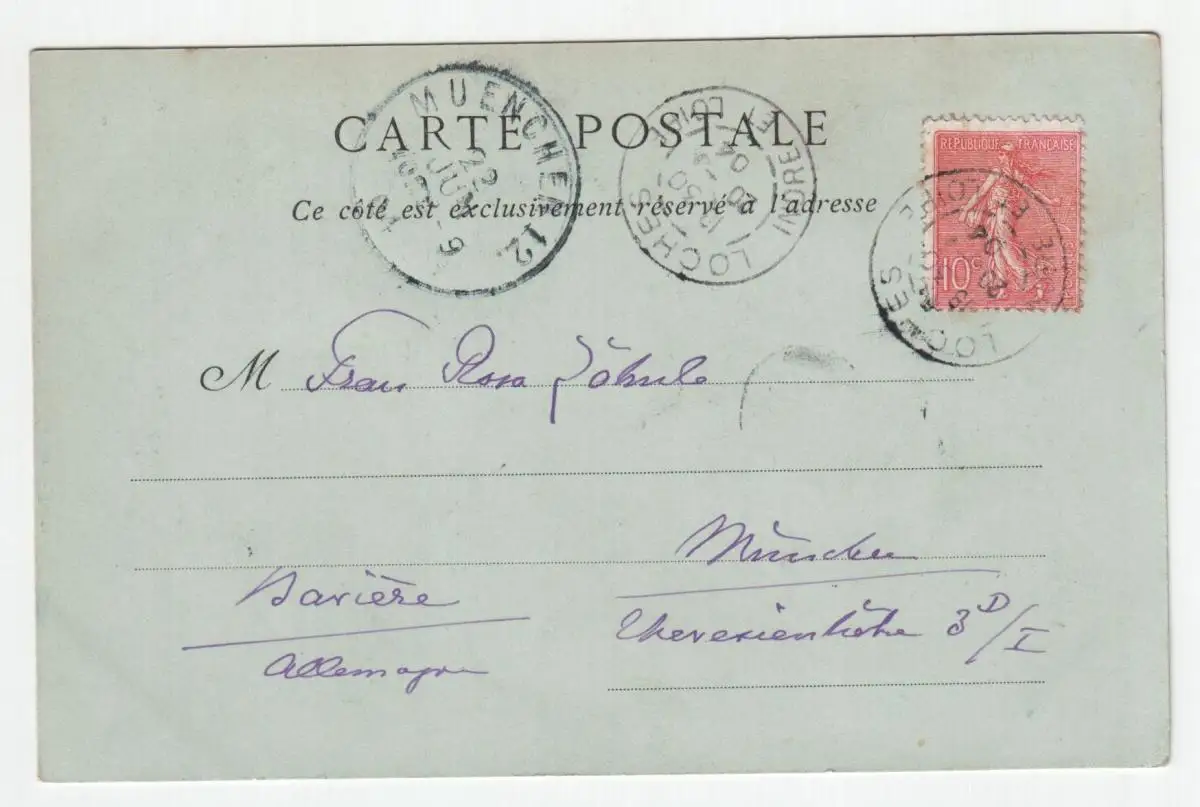 CARTE POSTALE
Ce côté est exclusivement réservé à l'adresse
MUENCHEN 12.
22
JUN
LOCHES
INDRE ET LOIRE
20
04
REPUBLIQUE FRANÇAISE
10c
LOCHES
M Frau Rosa
München
Bavière
Theresienhöhe 3D/I
Allemagne